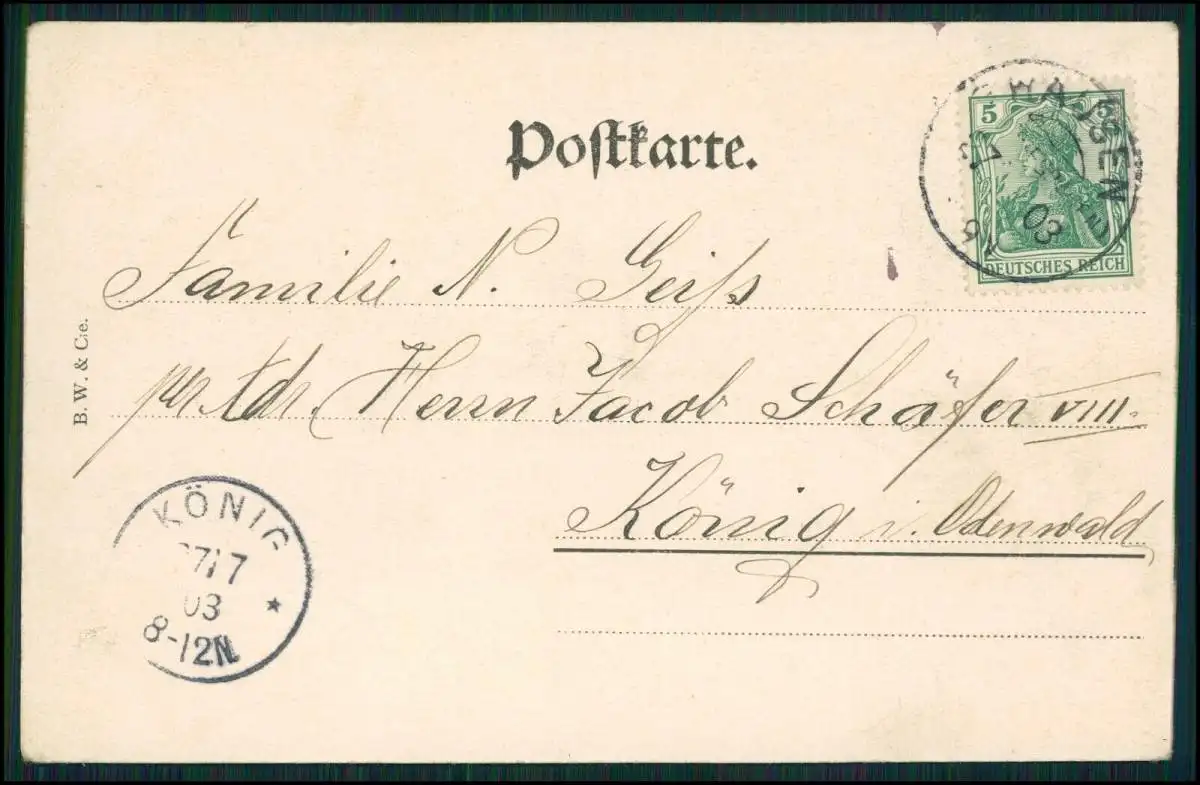 Postkarte.
5 5
DEUTSCHES REICH
03
Familie N. Geiß
pr Adr. Herrn Jacob Schäfer VIII.
König i. Odenwald
B. W. & Cie.
KÖNIG
27/7
03
8-12N.